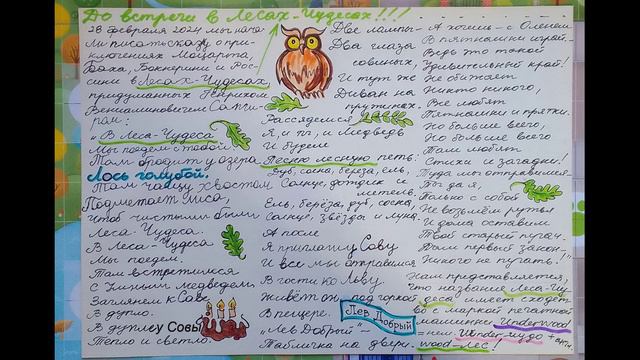 До встречи в Лесах-Чудесах!!!
28 февраля 2024 мы нача-
ли писать сказку о при-
ключениях Моцарта,
Баха, Боккерини и Рос-
сини в Лесах-Чудесах,
придуманных Генрихом
Вениаминовичем Сапги-
ром:
„В Леса-Чудеса
Мы поедем с тобой.
Там бродит у озера
Лось голубой.
Там чащу хвостом
Подметает лиса,
Чтоб чистыми были
Леса-Чудеса.
В Леса-Чудеса
Мы поедем.
Там встретимся
С Умным медведем.
Заглянем к Сове
В дупло.
В дупле у Совы
Тепло и светло.
Две лампы-
Два глаза
совиных,
И тут же
Диван на
пружинах.
Рассядемся
Я, и ты, и Медведь
И будем
Песню лесную петь:
Дуб, сосна, берёза, ель,
Солнце, дождик и
метель,
Ель, берёза, дуб, сосна,
Солнце, звёзды и луна.
А после
Я приглашу Сову
И все мы отправимся
В гости ко Льву.
Живёт он под горкой
В пещере.
„Лев Добрый"-
Табличка на двери.
Лев Добрый
А хочешь - с Оленем
В пятнашки играй.
Ведь это такой
Удивительный край!
Не обитает
Никто никого,
Все любят
Пятнашки и прятки.
Но больше всего,
Но больше всего
Там любят
Стихи и загадки!
Туда мы отправимся
Ты да я,
Только с собой
Не возьмём ружья
И дома оставим
Твой старый пугач.
Там первый закон-
Никого не пугать!"
Нам представляется,
что название Леса-Чу-
деса имеет сходст-
во с маркой печатной
машинки Underwood
Wunder
wood-Лес!